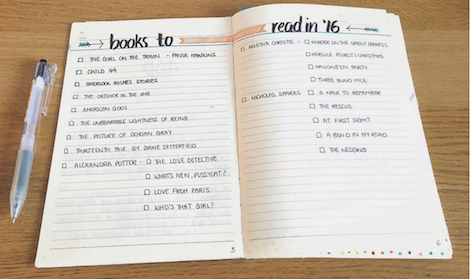 books to
THE GIRL ON THE TRAIN - PAULA HAWKINS
CHILD 44
SHERLOCK HOLMES STORIES
THE CATCHER IN THE RYE
AMERICAN GODS
THE UNBEARABLE LIGHTNESS OF BEING
THE PICTURE OF DORIAN GRAY
THIRTEENTH TALE BY DIANE SETTERFIELD
ALEXANDRA POTTER - THE LOVE DETECTIVE
WHAT'S NEW, PUSSYCAT?
LOVE FROM PARIS
WHO'S THAT GIRL?
5
read in '16
AGATHA CHRISTIE - MURDER ON THE ORIENT EXPRESS
HERCULE POIROT'S CHRISTMAS
HALLOWEEN PARTY
THREE BLIND MICE
NICHOLAS SPARKS - A WALK TO REMEMBER
THE RESCUE
AT FIRST SIGHT
A BEND IN MY ROAD
THE WEDDING
6